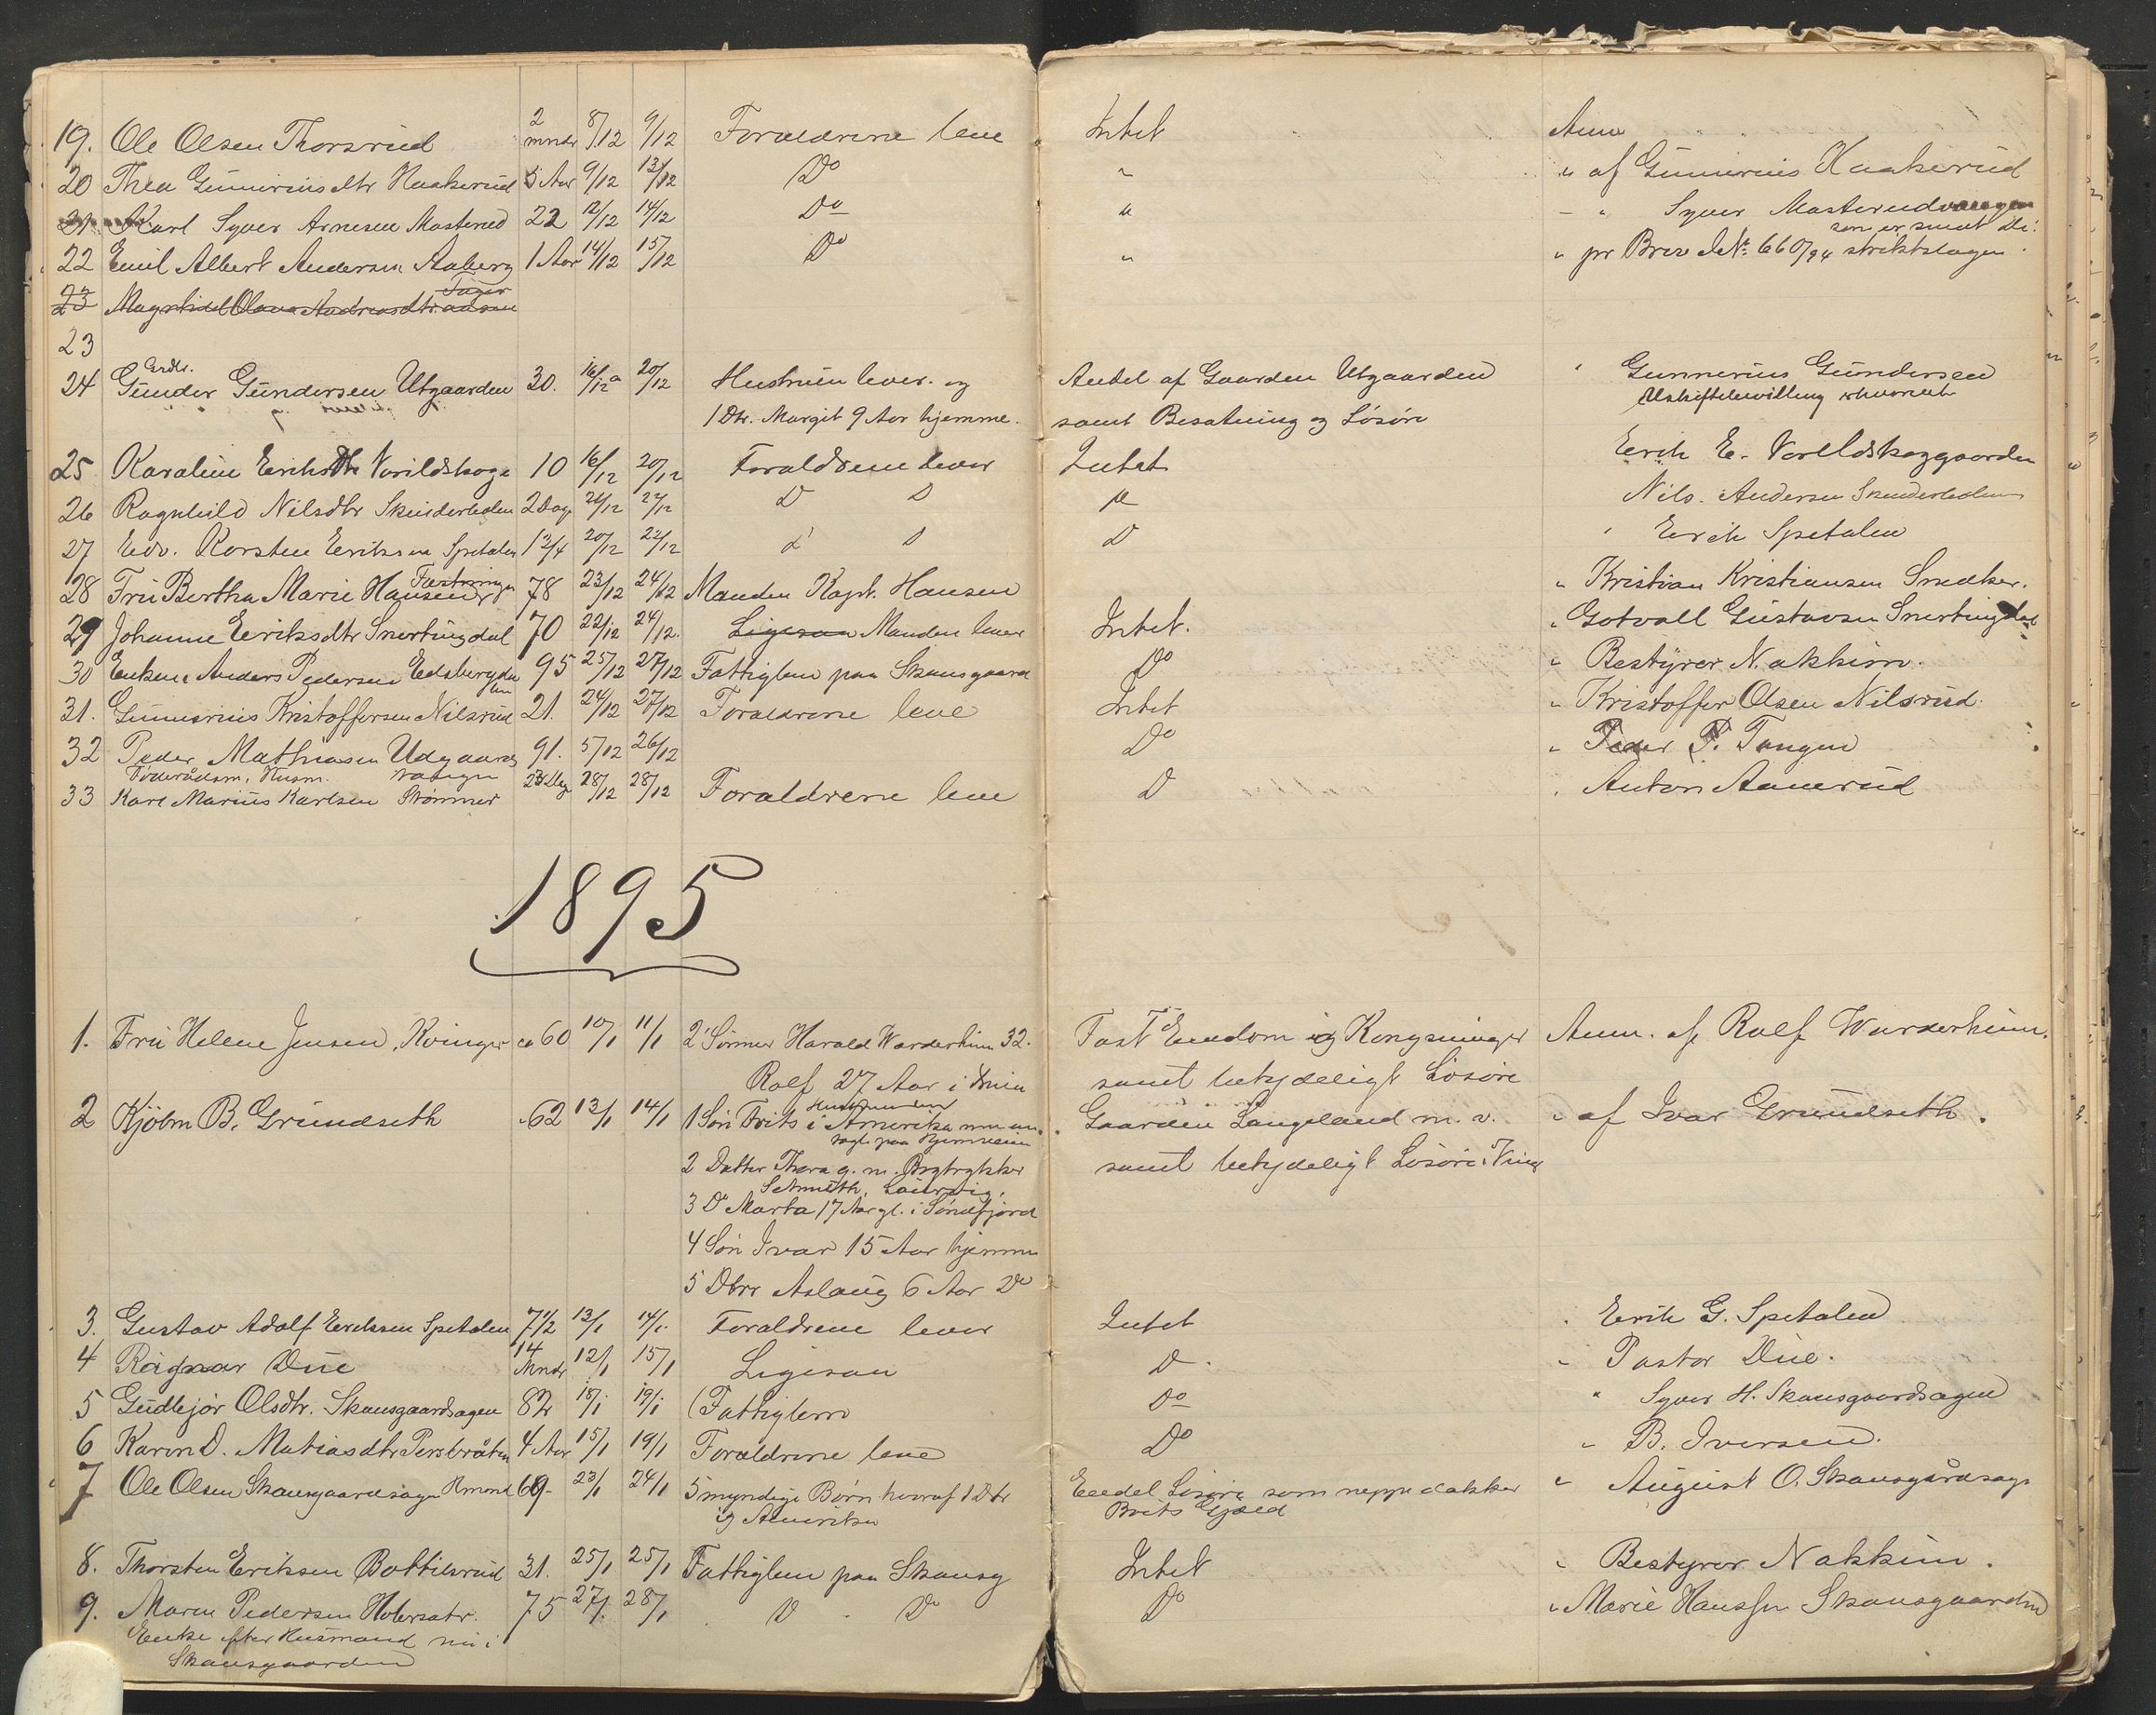 19. Ole Olsen Thorsrud 2 mndr 8/12 9/12 Forældrene leve Intet Anm
20 Thea Gunneriusdtr Haakerud 5 Aar 9/12 13/12 Do " " af Gunnerius Haakerud
21 Karl Syver Arnesen Masterud 22 12/12 14/12 Do " - " Syver Masterudvangen
som er sendt Di:
22 Emil Albert Andersen Aaberg 1 Aar 14/12 15/12 Do " " pr Brev No: 660/94 striktslagen.
23 Magnhild Olava Andreasdtr
23
Grdbr.
24 Gunder Gundersen Utgaarden 30. 16/12 20/12 Hustruen lever. og Andel af Gaarden Utgaarden " Gunnerius Gundersen
1 Dtr. Margit 9 Aar hjemme. samt Besætning og Løsøre Uskiftebevilling erhvervet
25 Karaline Eriksdtr Vorildskog 10 16/12 20/12 Forældrene lever Intet Erik E. Vorildskoggaarden
26 Ragnhild Nilsdtr Skinderleden 2 Dag 21/12 22/12 D D " Nils. Andersen Skinderleden
27 Edv. Korsten Eriksen Spetalen 1 3/4 20/12 22/12 D D D " Erik Spetalen
28 Fru Bertha Marie Hansen, Fæstningen 78 23/12 24/12 Manden Kapt. Hansen " Kristian Kristiansen Snedker.
29 Johanne Eriksdtr Snertingdal 70 22/12 24/12. Ligesaa Manden lever Intet. " Gotvall Gustavsen Snertingdal
30 Enkem. Anders Pedersen Edsbergdalen 95 25/12 27/12 Fattiglem paa Skansgaard Do " Bestyrer Nakkim.
31. Gunnerius Kristoffersen Nilsrud 21. 24/12 27/12 Forældrene leve Intet " Kristoffer Olsen Nilsrud.
32 Peder Mathiasen Udgaardstangen 91. 5/12 26/12 Do " Peder P. Tangen
Føderådsm. Husm.
33 Karl Marius Karlsen Strømmer 23 Dag 28/12 28/12 Forældrene leve D " Anton Aanerud
1895
1. Fru Helene Jensen, Kvinger ca 60 10/1 11/1 2 Sønner Harald Warderheim 32. Fast Eiendom i Kongsvinger Anm. af Rolf Warderheim.
Rolf 27 Aar i samt betydeligt Løsøre
2 Kjøbm B. Grundseth 62 13/1 14/1 1 Søn Frits i Amerika Gaarden Langeland m. v. " af Ivar Grundseth.
2 Datter Thora g. m. Bogtrykker samt betydeligt Løsøre i Kving
3 Do Marta 17 Aar gl. i Søndfjord
4 Søn Ivar 15 Aar hjemme
5 Dtr Aslaug 6 Aar Do
3. Gustav Adolf Eriksen Spetalen 7 1/2 13/1 14/1. Forældrene lever Intet " Erik G. Spetalen
4 Ragnar Due 14 Mndr 12/1 15/1 Ligesaa D. " Pastor Due.
5 Gudbjør Olsdtr. Skansgaardsagen 82 18/1 19/1 Fattiglem Do " Syver H. Skansgaardsagen
6 Karen D. Matiasdtr Persbråten 4 Aar 15/1 19/1 Forældrene leve Do " B. Iversen.
7 Ole Olsen Skansgaardsagen Hmand 69 23/1 24/1 5 myndige Børn hvoraf 1 Dtr Endel Løsøre som neppe dækker " August O. Skansgårdsag
i Amerika Boets Gjæld
8. Thorsten Eriksen Bottilsrud 31. 25/1 25/1 Fattiglem paa Skansg Intet " Bestyrer Nakkim.
9. Maren Pedersen Holersætr. 75 27/1. 28/1 D Do Do " Marie Hanssen Skansgaarden
Enke efter Husmand nu i
Skansgaarden